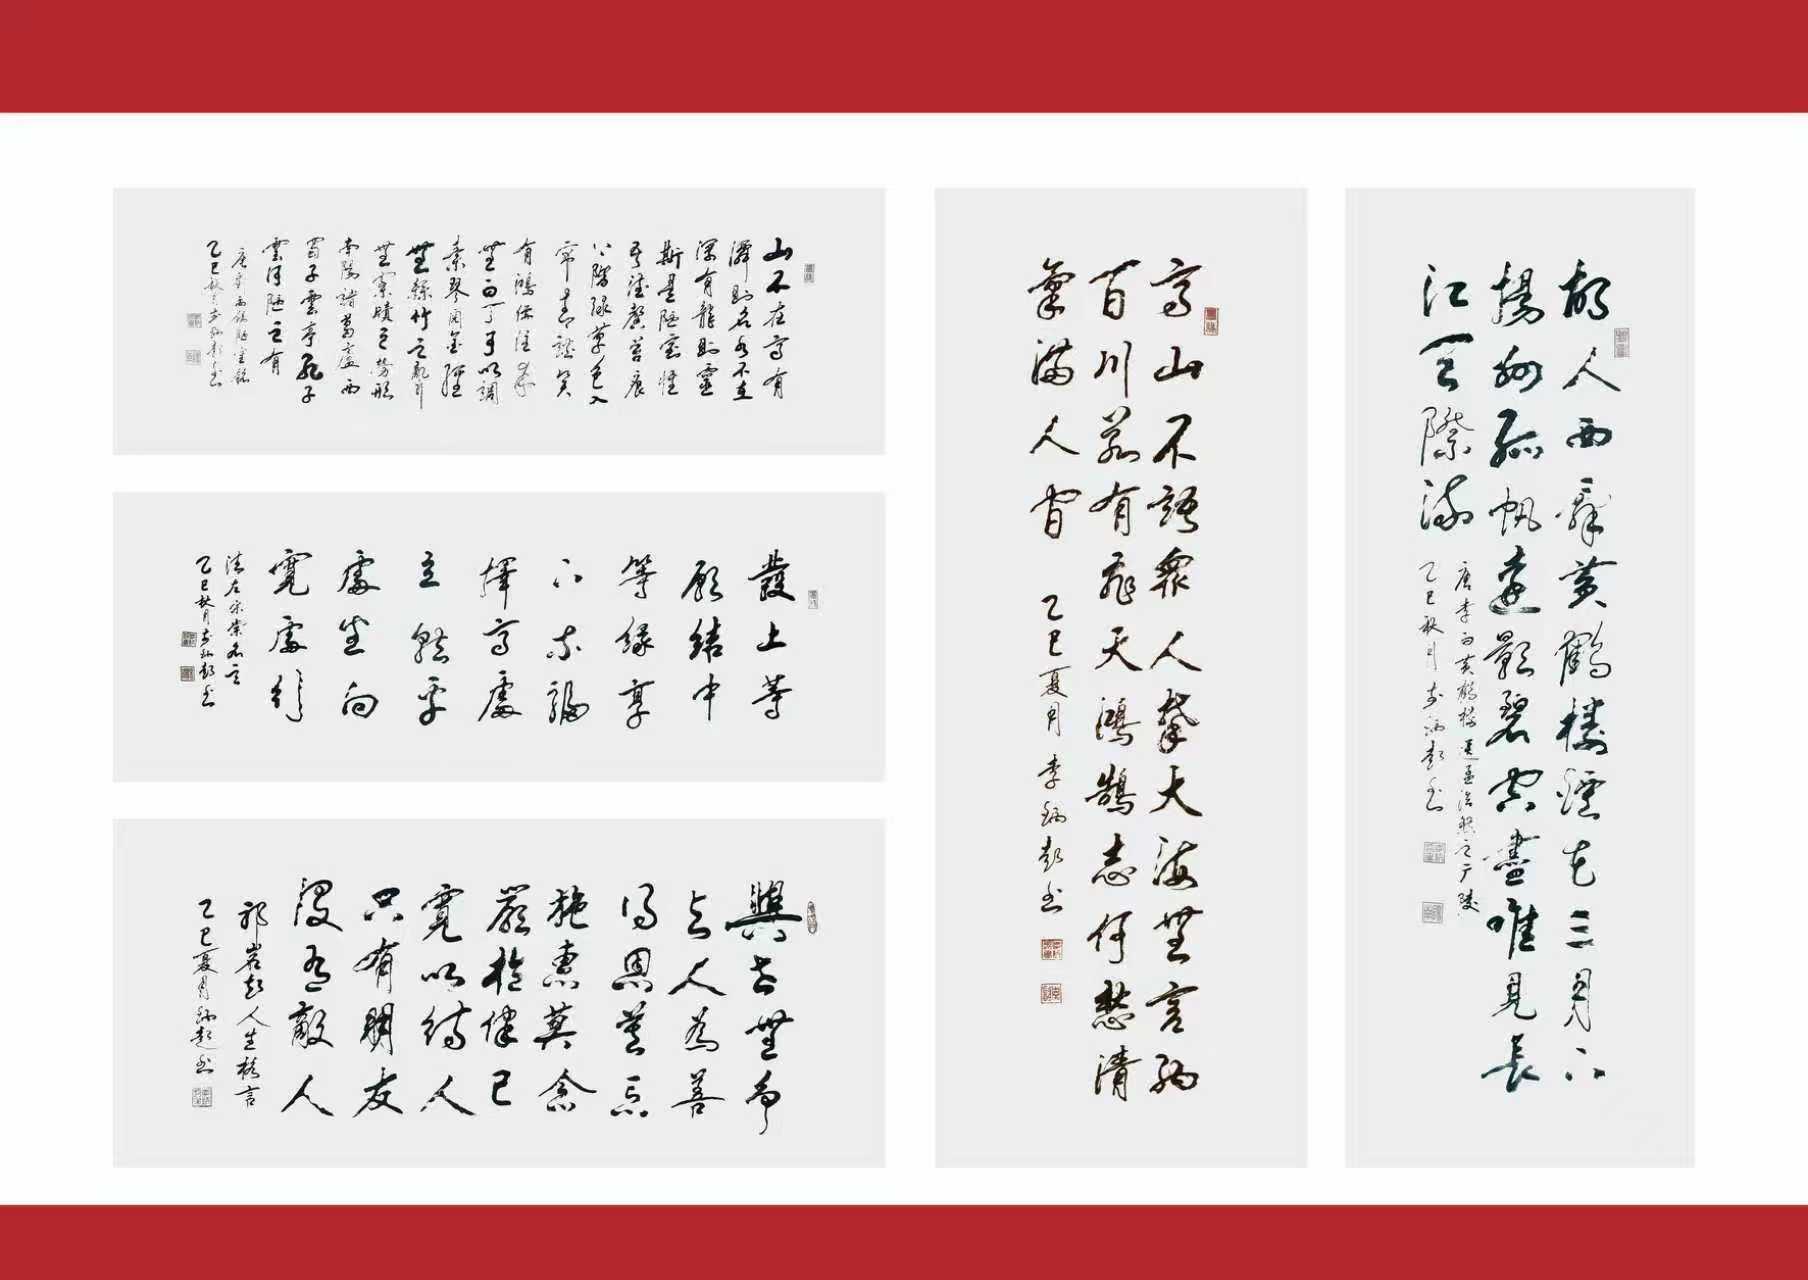 山不在高有
僊則名水不在
深有龍則靈
斯是陋室惟
吾德馨苔痕
上階綠草色入
簾青談笑
有鴻儒往來
無白丁可以調
素琴閱金經
無絲竹之亂耳
無案牘之勞形
南陽諸葛廬西
蜀子雲亭孔子
雲何陋之有
乙巳秋月
發上等
願結中
等緣享
下等福
擇高處
立就平
處坐向
寬處行
清左宗棠名言
乙巳秋月
與世無爭
與人為善
得恩莫忘
施惠莫念
嚴於律己
寬以待人
只有朋友
沒有敵人
人生格言
乙巳夏月炳彭书
高山不語眾人攀大海無言納
百川若有飛天鴻鵠志何愁清
氣滿人間
乙巳夏月李炳彭书
故人西辭黃鶴樓煙花三月下
揚州孤帆遠影碧空盡唯見長
江天際流
唐李白黃鶴樓送孟浩然之广陵
乙巳秋月李炳彭书